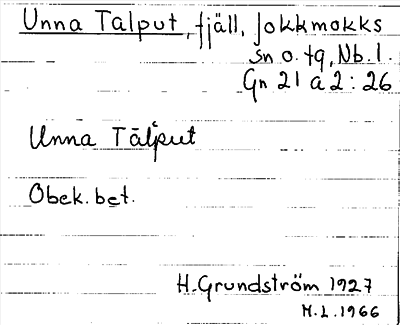 Unna Talput, fjäll, Jokkmokks
sn o. tg, Nb. l.
Gn 21 a 2 : 26
Unna Tālput
Obek. bet.
H. Grundström 1927
M.L. 1966